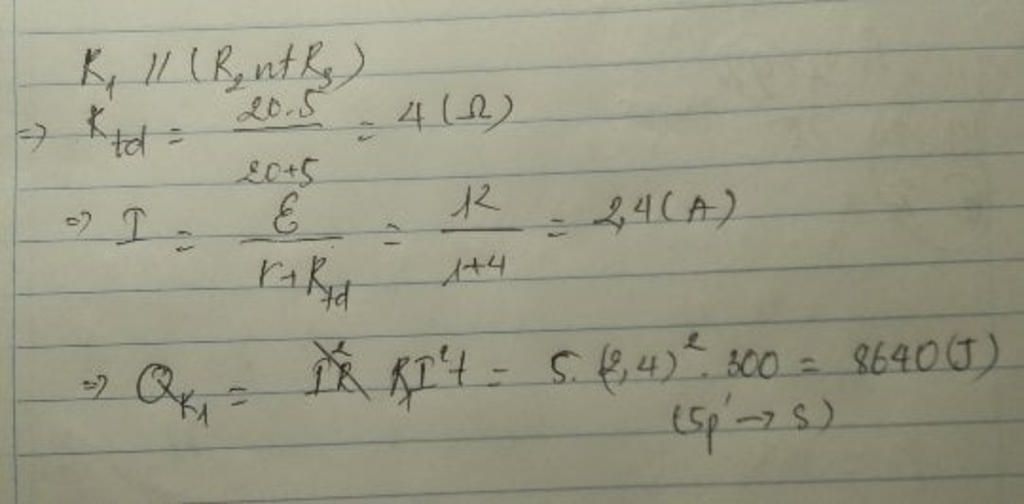 R₁ // (R₂ nt R₃)
=> R_tđ = 20.5 / 20+5 = 4 (Ω)
=> I = ℰ / r+R_tđ = 12 / 1+4 = 2,4 (A)
=> Q_R1 = R₁I²t = 5.(2,4)².300 = 8640 (J)
(5p' → s)